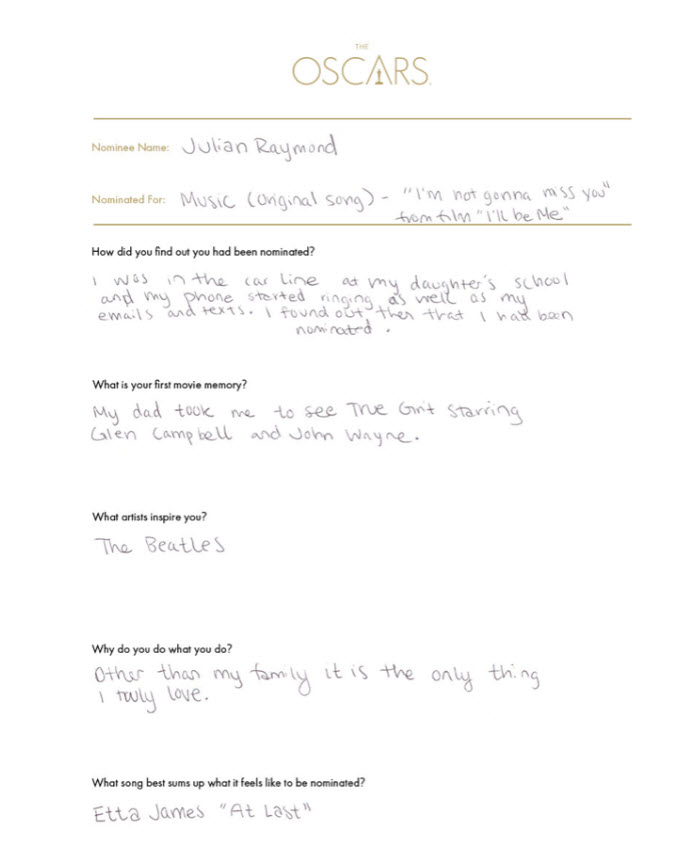 THE
OSCARS.
Nominee Name: Julian Raymond
Nominated For: Music (Original song) - "I'm not gonna miss you"
from film "I'll be Me"
How did you find out you had been nominated?
I was in the car line at my daughter's school
and my phone started ringing as well as my
emails and texts. I found out then that I had been
nominated.
What is your first movie memory?
My dad took me to see True Grit starring
Glen Campbell and John Wayne.
What artists inspire you?
The Beatles
Why do you do what you do?
Other than my family it is the only thing
I truly love.
What song best sums up what it feels like to be nominated?
Etta James "At Last"